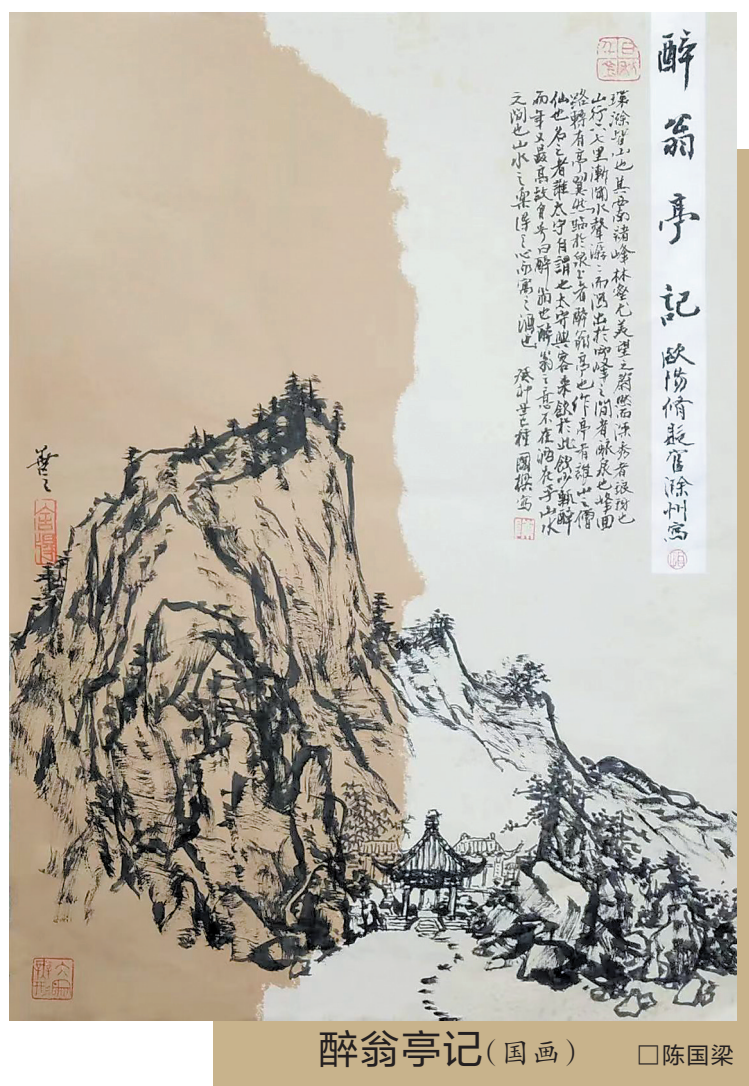 醉翁亭記 歐陽脩貶官滁州寫
環滁皆山也其西南諸峰林壑尤美望之蔚然而深秀者琅琊也
山行六七里漸聞水聲潺〻而瀉出於兩峰之間者釀泉也峰回
路轉有亭翼然臨於泉上者醉翁亭也作亭者誰山之僧
仙也名之者誰太守自謂也太守與客來飲於此飲少輒醉
而年又最高故自号曰醉翁也醉翁之意不在酒在乎山水
之間也山水之樂得之心而寓之酒也 癸卯芒種 國樑寫
舍得
醉翁亭记(国画) □陈国梁